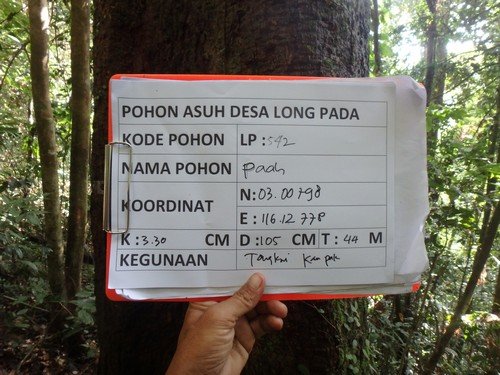 POHON ASUH DESA LONG PADA
KODE POHON LP : 542
NAMA POHON
KOORDINAT N: 03.00798
E : 116.12 778
K : 3.30 CM D : 105 CM T : 44 M
KEGUNAAN